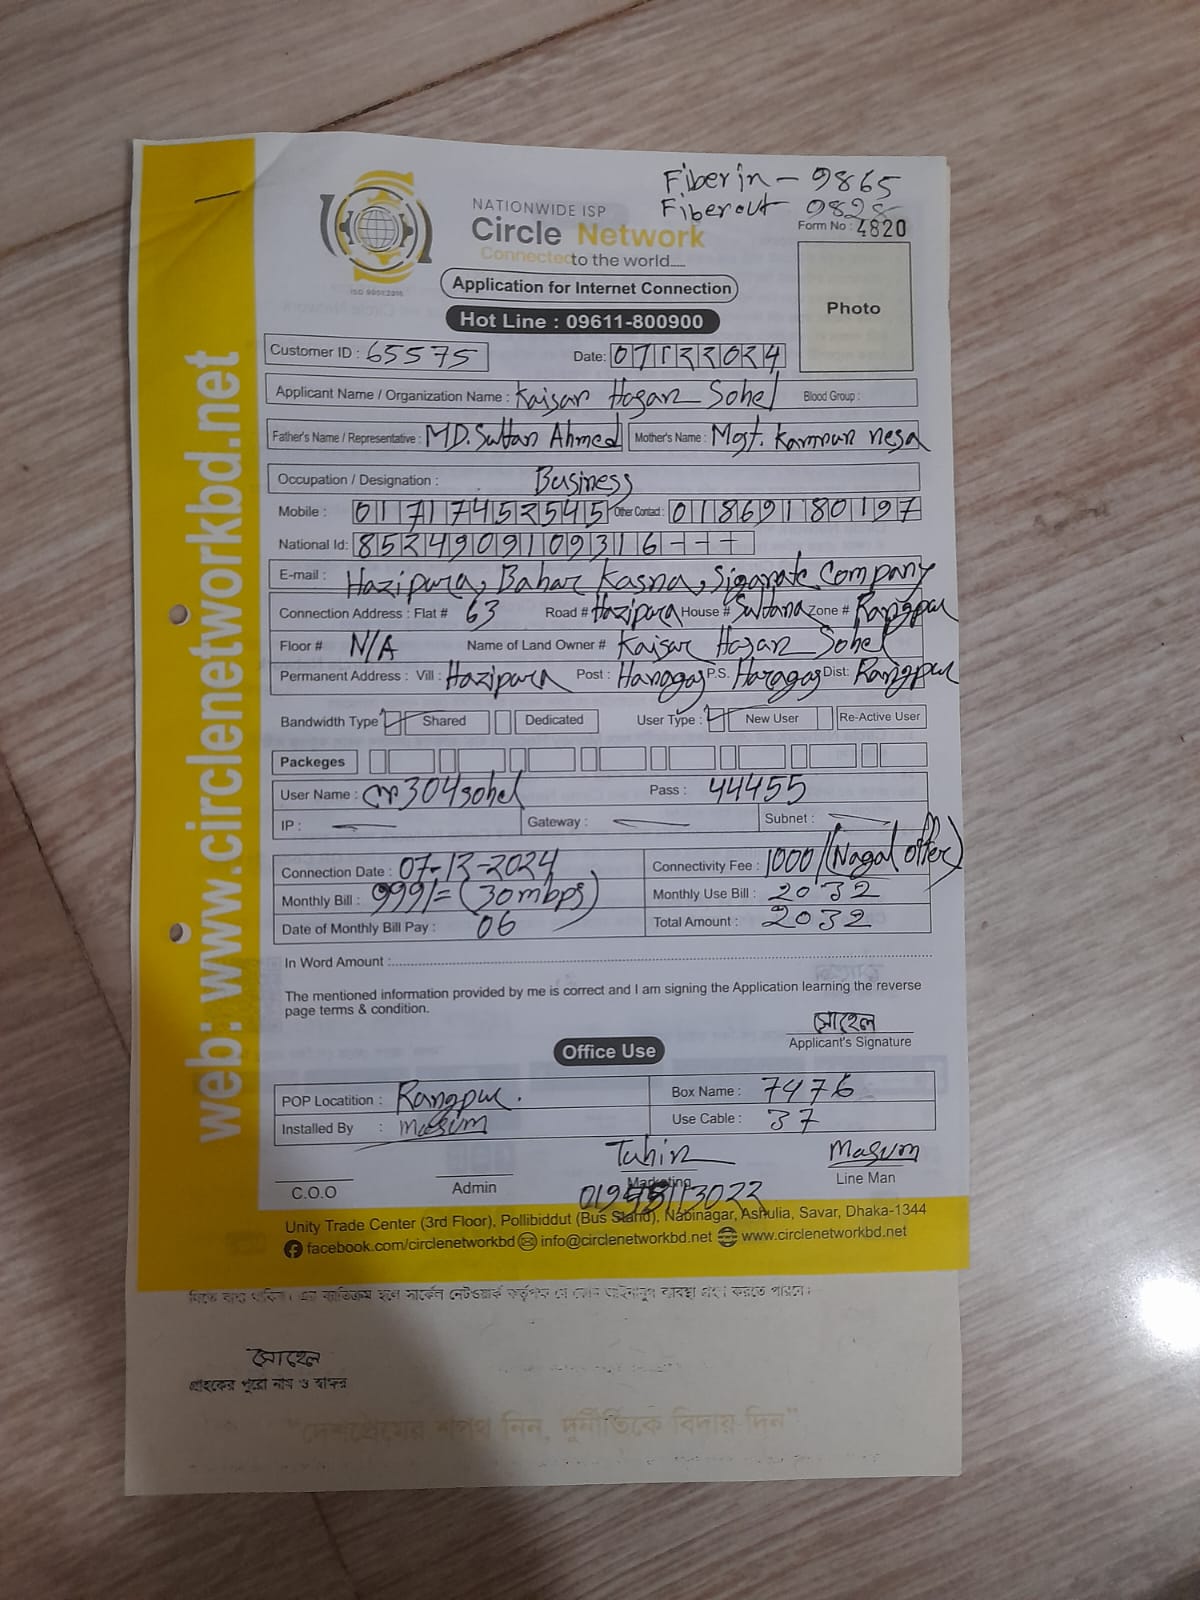 Fiber in - 9865
Fiber out - 9828
NATIONWIDE ISP
Circle Network
Connected to the world.....
ISO 9001:2015
Form No : 4820
Application for Internet Connection
Photo
Hot Line : 09611-800900
Customer ID : 65575 Date: 07122024
Applicant Name / Organization Name : Kaisar Hasan Sohel Blood Group :
Father's Name / Representative : MD. Sultan Ahmed Mother's Name : Mst. Kamrun nesa
Occupation / Designation : Business
Mobile : 01717452545 Other Contact : 01869180197
National Id: 8524909109316
E-mail : Hazipara, Bahar Kasna, Sigarate Company
Connection Address : Flat # 63 Road # Hazipara House # Sultana Zone # Rangpur
Floor # N/A Name of Land Owner # Kaisar Hasan Sohel
Permanent Address : Vill : Hazipara Post : Haragas P.S. Haragas Dist: Rangpur
Bandwidth Type Shared Dedicated User Type : New User Re-Active User
Packeges
User Name : cr304sohel Pass : 44455
IP : Gateway : Subnet :
Connection Date : 07-12-2024 Connectivity Fee : 1000/(Nagal offer)
Monthly Bill : 999/= (30mbps) Monthly Use Bill : 2032
Date of Monthly Bill Pay : 06 Total Amount : 2032
In Word Amount :
The mentioned information provided by me is correct and I am signing the Application learning the reverse
page terms & condition.
সোহেল
Applicant's Signature
Office Use
POP Locatition : Rangpur. Box Name : 7476
Installed By : Masum Use Cable : 37
Tuhin Masum
C.O.O Admin Marketing Line Man
Unity Trade Center (3rd Floor), Pollibiddut (Bus Stand), Nabinagar, Ashulia, Savar, Dhaka-1344
facebook.com/circlenetworkbd info@circlenetworkbd.net www.circlenetworkbd.net
web: www.circlenetworkbd.net
সোহেল
গ্রাহকের পুরো নাম ও স্বাক্ষর
"দেশপ্রেমের শপথ নিন, দুর্নীতিকে বিদায় দিন"